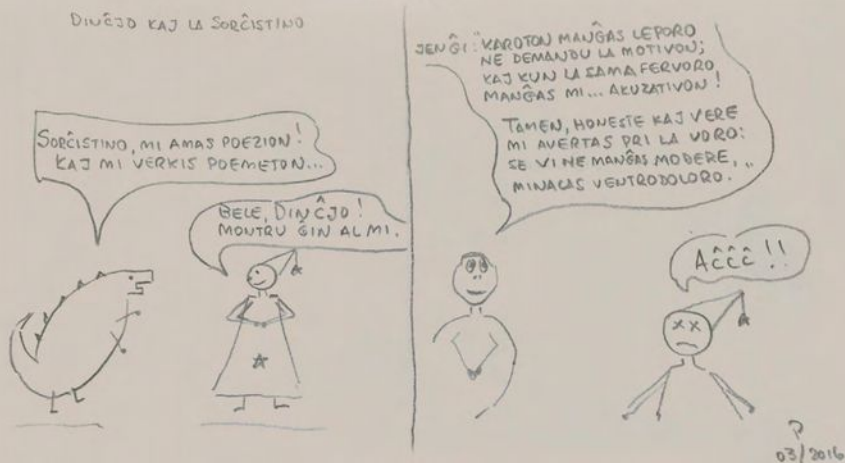 DINĈJO KAJ LA SORĈISTINO
SORĈISTINO, MI AMAS POEZION!
KAJ MI VERKIS POEMETON...
BELE, DINĈJO!
MONTRU ĜIN AL MI.
JEN ĜI: "KAROTON MANĜAS LEPORO
NE DEMANDU LA MOTIVON;
KAJ KUN LA SAMA FERVORO
MANĜAS MI... AKUZATIVON!
TAMEN, HONESTE KAJ VERE
MI AVERTAS PRI LA VORO:
SE VI NE MANĜAS MODERE,
MINACAS VENTRODOLORO."
AĈĈĈ!!
P
03/2016